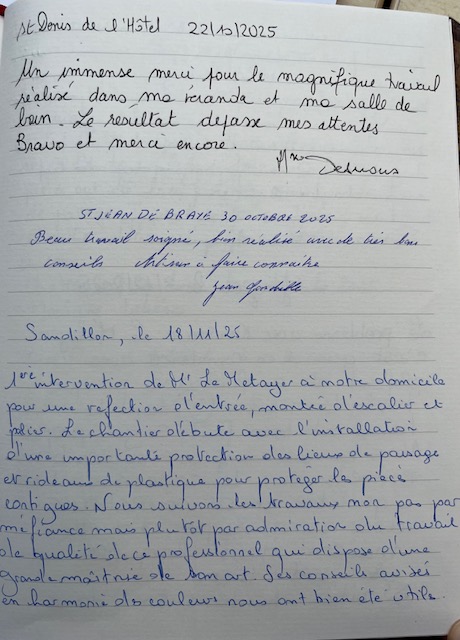 St Denis de l'Hôtel 22/10/2025
Un immense merci pour le magnifique travail
réalisé dans ma véranda et ma salle de
bain. Le résultat dépasse mes attentes
Bravo et merci encore.
Mme
ST JEAN DE BRAYE 30 OCTOBRE 2025
Beau travail soigné, bien réalisé avec de très bons
conseils Artisan à faire connaître
Jean
Sandillon, le 18/11/25
1ère intervention de Mr Le Metayer à notre domicile
pour une refection d'entrée, montée d'escalier et
palier. Le chantier débute avec l'installation
d'une importante protection des lieux de passage
et rideaux de plastique pour protéger les pièces
contigues. Nous suivons les travaux non pas par
méfiance mais plutôt par admiration du travail
de qualité de ce professionnel qui dispose d'une
grande maîtrise de son art. Ses conseils avisés
en harmonie des couleurs nous ont bien été utile.